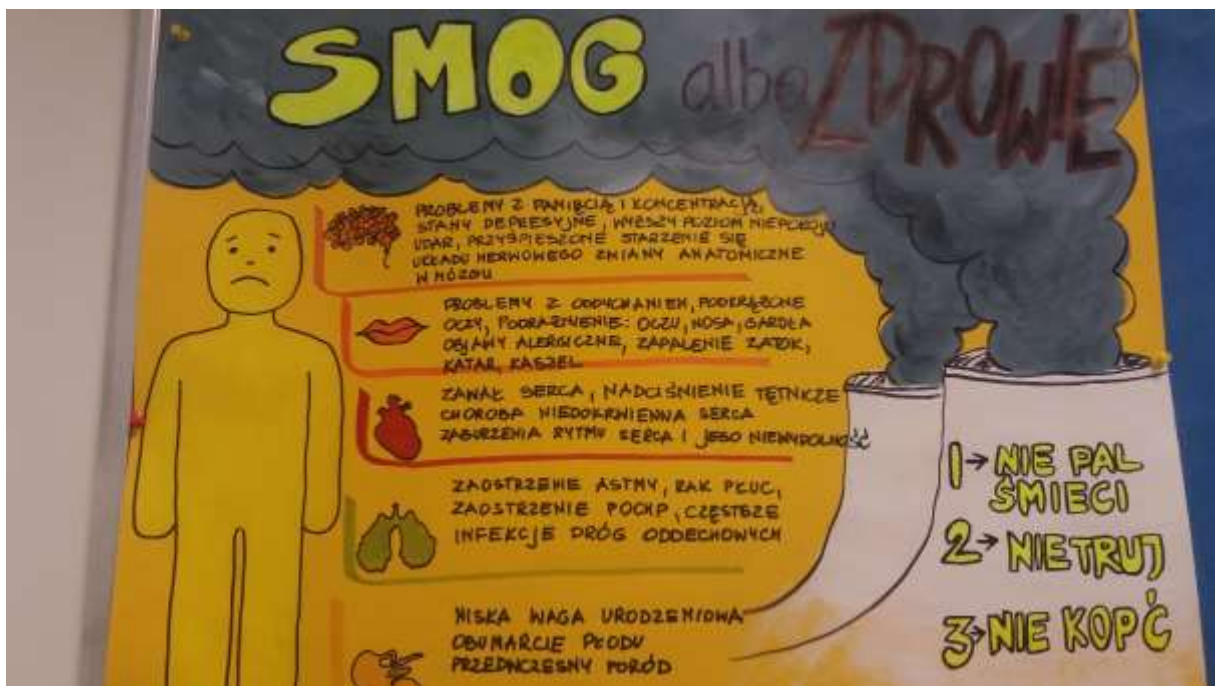 SMOG albo ZDROWIE
PROBLEMY Z PAMIĘCIĄ I KONCENTRACJĄ,
STANY DEPRESYJNE, WYŻSZY POZIOM NIEPOKOJU
UDAR, PRZYSPIESZONE STARZENIE SIĘ
UKŁADU NERWOWEGO ZMIANY ANATOMICZNE
W MÓZGU
PROBLEMY Z ODDYCHANIEM, PODKRĄŻONE
OCZY, PODRAŻNIENIE: OCZU, NOSA, GARDŁA
OBJAWY ALERGICZNE, ZAPALENIE ZATOK,
KATAR, KASZEL
ZAWAŁ SERCA, NADCIŚNIENIE TĘTNICZE
CHOROBA NIEDOKRWIENNA SERCA
ZABURZENIA RYTMU SERCA I JEGO NIEWYDOLNOŚĆ
ZAOSTRZENIE ASTMY, RAK PŁUC,
ZAOSTRZENIE POCHP, CZĘSTSZE
INFEKCJE DRÓG ODDECHOWYCH
NISKA WAGA URODZENIOWA
OBUMARCIE PŁODU
PRZEDWCZESNY PORÓD
1→ NIE PAL
ŚMIECI
2→ NIE TRUJ
3→ NIE KOPĆ